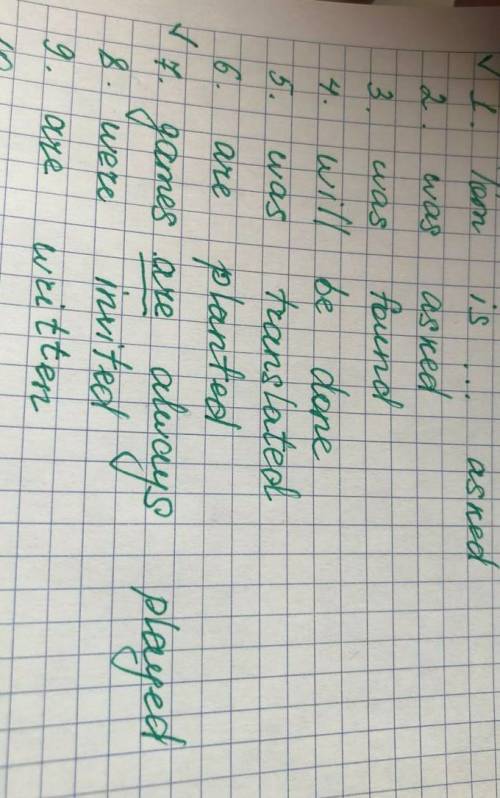 ✓ 1. Tom is ... asked
2. was asked
3. was found
4. will be done
5. was translated
6. are planted
✓ 7. games are always played
8. were invited
9. are written